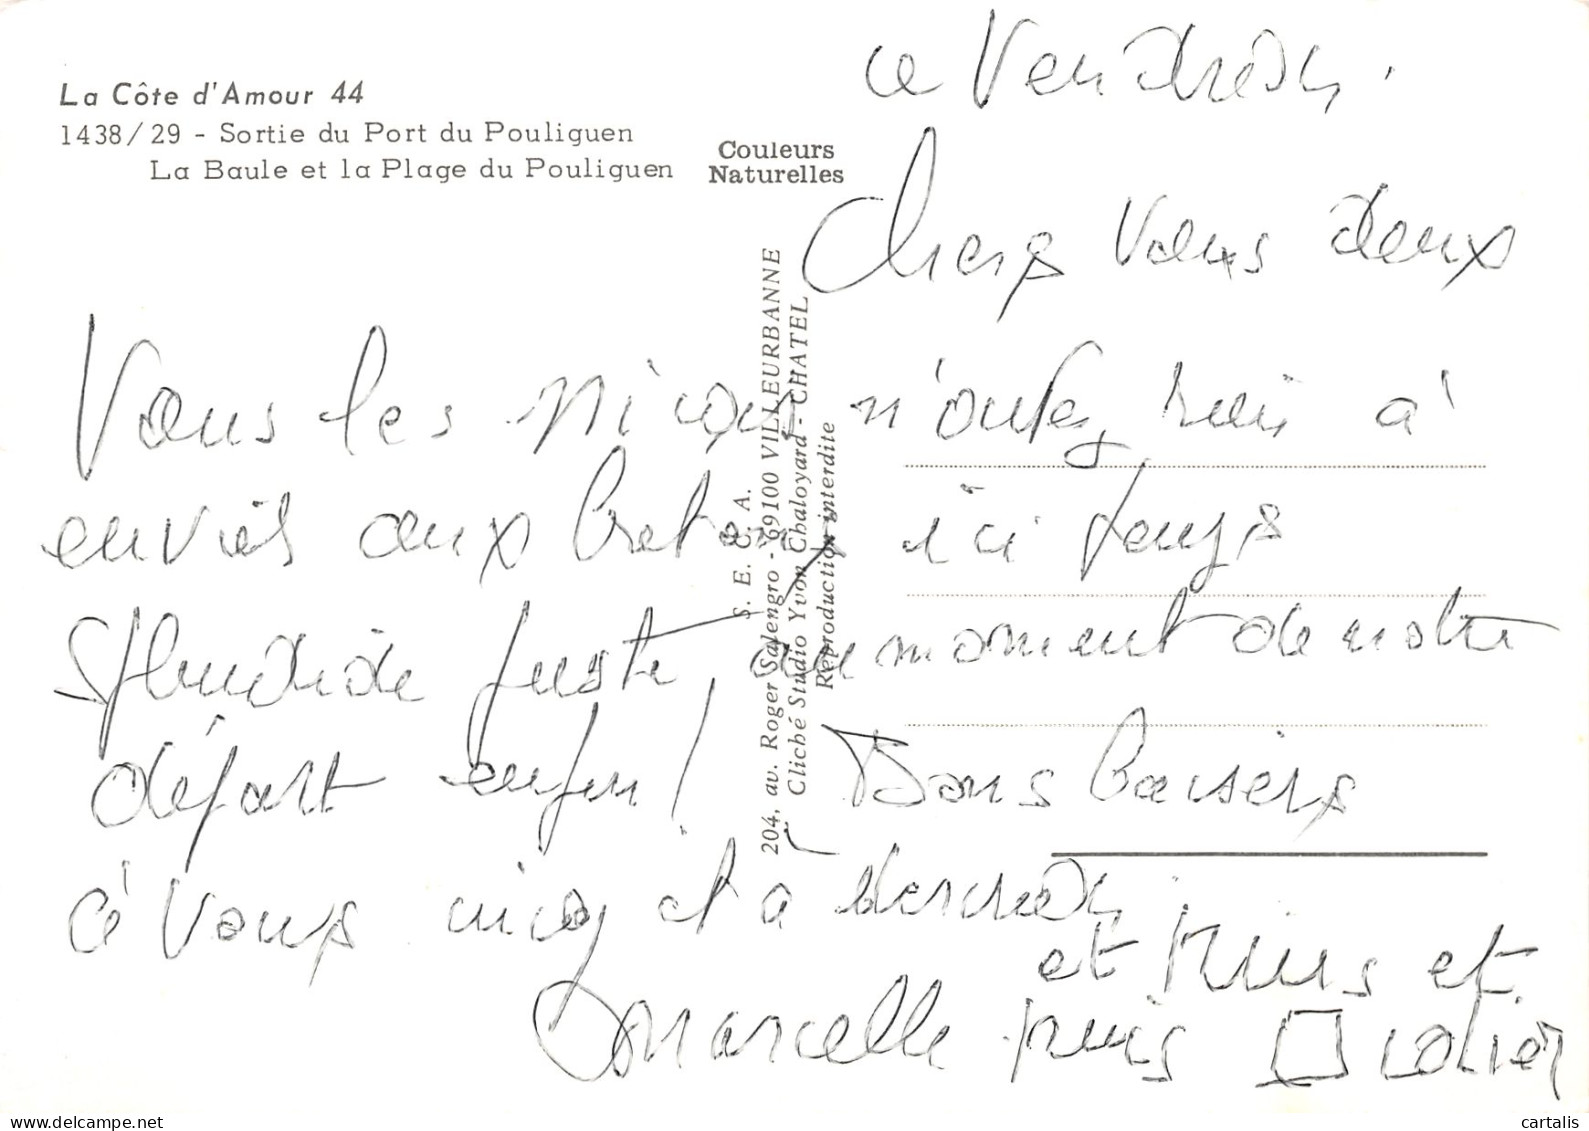 La Côte d'Amour 44
1438/29 - Sortie du Port du Pouliguen
La Baule et la Plage du Pouliguen
Couleurs
Naturelles
S. E. C. A.
204, av. Roger Salengro - 69100 VILLEURBANNE
Cliché Studio Yvon Chaloyard - CHATEL
Reproduction interdite
ce Vendredi.
Chers Vous deux
Vous les niçois n'avez rien à
envier aux bretons ici temps
splendide juste au moment de notre
départ enfin ! Bons baisers
à vous et à
et et
Marcelle puis Didier
cartalis
www.delcampe.net